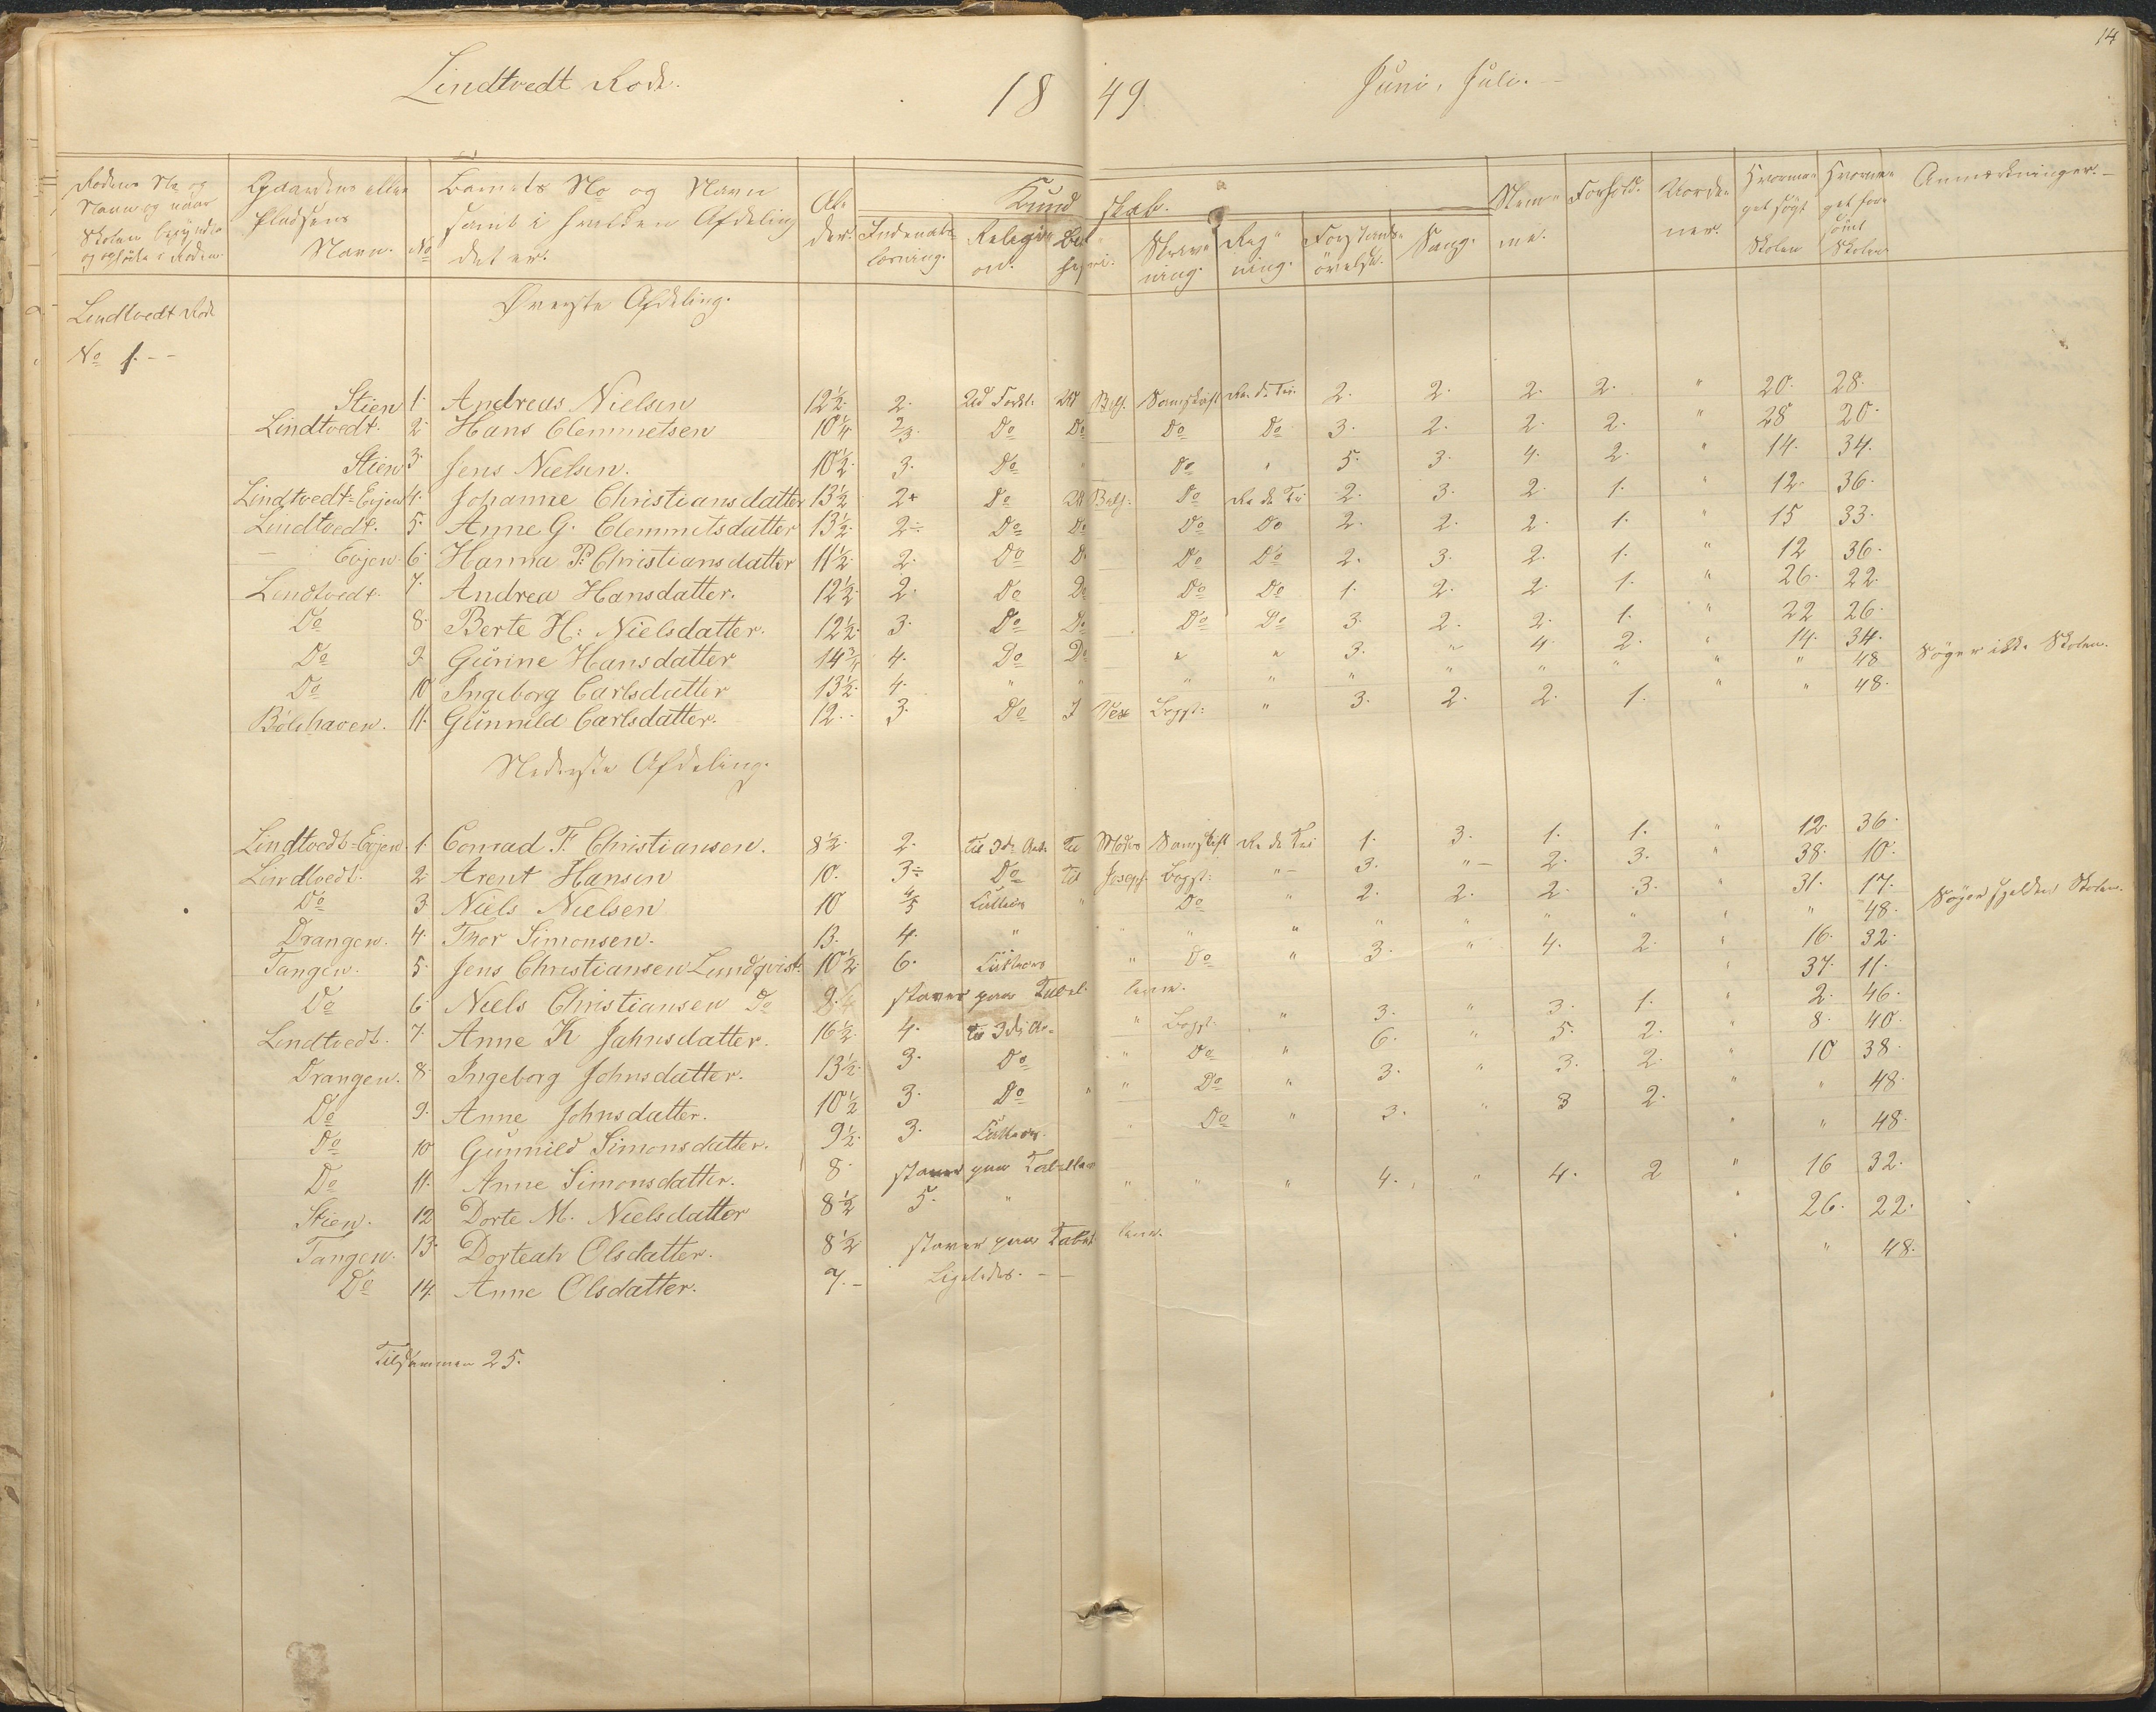 14
Lindtvedt Rode. 1849 Juni, Juli.
Rodens No og Navn og naar Skolen begyndte og ophørte i Roden.
Gaardens eller Pladsens Navn.
No
Barnets No og Navn samt i hvilken Afdeling det er.
Alder.
Kundskab.
Indenadslæsning.
Religion.
Skrivning.
Regning.
Forstandsøvelse.
Sang.
Nemme.
Forhold.
Hvormeget søgt Skolen
Hvormeget forsømt Skolen
Anmærkninger.
Lindtvedt Rode
No 1.
Øverste Afdeling.
Stien 1. Andreas Nielsen 12½ 2. 2. 2. 2. 2. " 20. 28.
Lindtvedt. 2. Hans Clemmetsen 10¼ 2/3. Do Do Do Do 3. 2. 2. 2. " 28 20.
Stien 3. Jens Nielsen. 10½ 3. Do " Do " 5. 3. 4. 2. " 14. 34.
Lindtvedt=Evjen 4. Johanne Christiansdatter 13½ 2+ Do Do 2. 3. 2. 1. " 12. 36.
Lindtvedt. 5. Anne G. Clemmetsdatter 13½ 2÷ Do Do Do Do 2. 2. 2. 1. " 15 33.
— Evjen. 6. Hanna P. Christiansdatter 11½ 2. Do D. Do Do 2. 3. 2. 1. " 12 36.
Lindtvedt. 7. Andrea Hansdatter. 12½ 2. Do Do Do Do 1. 2. 2. 1. " 26. 22.
Do 8. Berte H: Nielsdatter. 12½ 3. Do Do Do Do 3. 2. 2. 1. " 22 26.
Do 9. Gurine Hansdatter 14¾ 4. Do Do " " 3. " 4. 2. " 14. 34.
Do 10 Ingeborg Carlsdatter 13½ 4. " " " " " " " " " " 48 Søger ikke Skolen.
Bölehaven. 11. Gunnild Carlsdatter. 12. 3. Do " 3. 2. 2. 1. " " 48.
Nederste Afdeling.
Lindtvedt=Evjen. 1. Conrad F. Christiansen. 8½ 2. 1. 3. 1. 1. " 12. 36.
Lindtvedt. 2. Arent Hansen 10. 3÷ Do Til Joseph "– 3. "– 2. 3. " 38. 10.
Do 3. Niels Nielsen 10 4/5 " Do " 2. 2. 2. 3. " 31. 17.
Drangen. 4. Thor Simonsen. 13. 4. " " " " " " " " " 48. Søger sjelden Skolen.
Tangen. 5. Jens Christiansen Lundqvist. 10½ 6. " Do " 3. " 4. 2. " 16. 32.
Do 6. Niels Christiansen Do staver paa Tabellerne. " 37. 11.
Lindtvedt. 7. Anne K Jahnsdatter. 16½ 4. " " 3. " 3. 1. " 2. 46.
Drangen. 8. Ingeborg Johnsdatter. 13½ 3. Do " Do " 6. " 5. 2. " 8. 40.
Do 9. Anne Johnsdatter. 10½ 3. Do " " Do " 3. " 3. 2. " 10 38.
Do 10 Gunnild Simonsdatter. 9½ 3. " Do " 3. " 3 2. " " 48.
Do 11. Anne Simonsdatter. 8. staver paa Tabellen " " 48.
Stien. 12 Dorte M. Nielsdatter 8½ 5. " " " " 4. " 4. 2 " 16 32.
Tangen. 13. Dorteah Olsdatter. 8½ staver paa Tabellerne. " 26. 22.
Do 14. Anne Olsdatter. 7.– Ligeledes. – – " " 48.
Tilsammen 25.